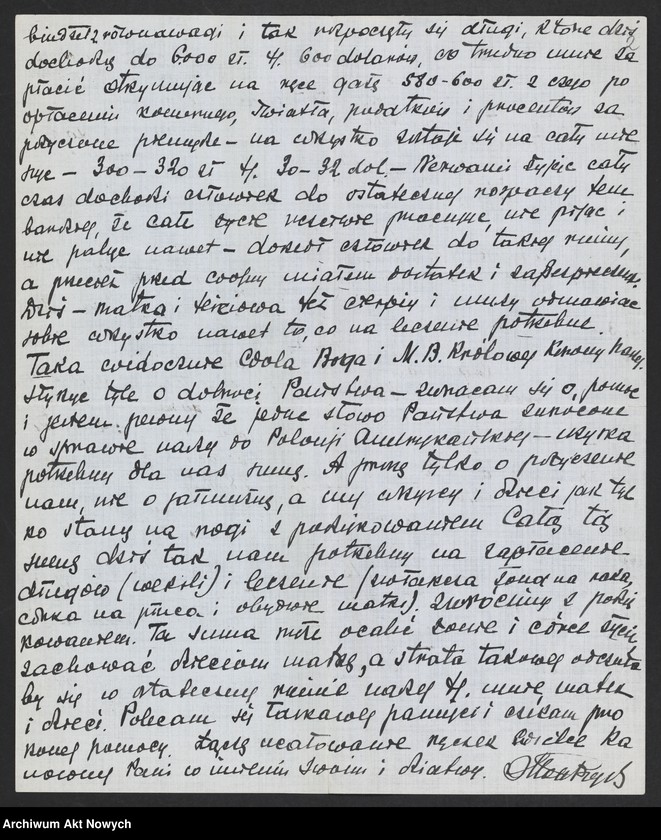 budżet z równowagi i tak rozpoczęły się długi, które dziś
dochodzą do 6000 zł. tj. 600 dolarów, co trudno mnie za
płacić otrzymując na ręce gażę 580-600 zł. z czego po
opłaceniu komornego, światła, podatków i procentów za
pożyczone pieniądze – na wszystko zostaje się na cały mie
siąc – 300-320 zł tj. 30-32 dol. – Nerwami żyjąc cały
czas dochodzi człowiek do ostatecznej rozpaczy tem
bardziej, że całe życie uczciwie pracując, nie pijąc i
nie paląc nawet – doszedł człowiek do takiej ruiny,
a przecież przed wojną miałem dostatek i zabezpieczenie.
Dziś – matka i teściowa też cierpią i muszą odmawiać
sobie wszystko nawet to, co na leczenie potrzebne.
Taka widocznie Wola Boga i M. B. Królowej Korony
Słysząc tyle o dobroci Państwa – zwracam się o pomoc
i jestem pewny że jedno słowo Państwa zwrócone
w sprawie naszej do Polonji Amerykańskiej – uzyska
potrzebną dla nas sumę. A proszę tylko o pożyczenie
nam, nie o jałmużnę, a my wszyscy i dzieci jak tyl
ko staną na nogi z podziękowaniem Całą tą
sumę dziś tak nam potrzebną na zapłacenie
długów (weksli) i leczenie (zwłaszcza żona na raka,
córka na płuca i obydwie matki). zwrócimy z podzię
kowaniem. Ta suma może ocalić żonie i córce życie,
zachować dzieciom matkę, a strata takowej odczuła
by się w ostatecznej ruinie naszej tj. mnie, matek
i dzieci. Polecam się łaskawej pamięci i czekam pro
szonej pomocy. Łączę ucałowanie rączek Wielce Sza
nownej Pani w imieniu swoim i dziatwy.